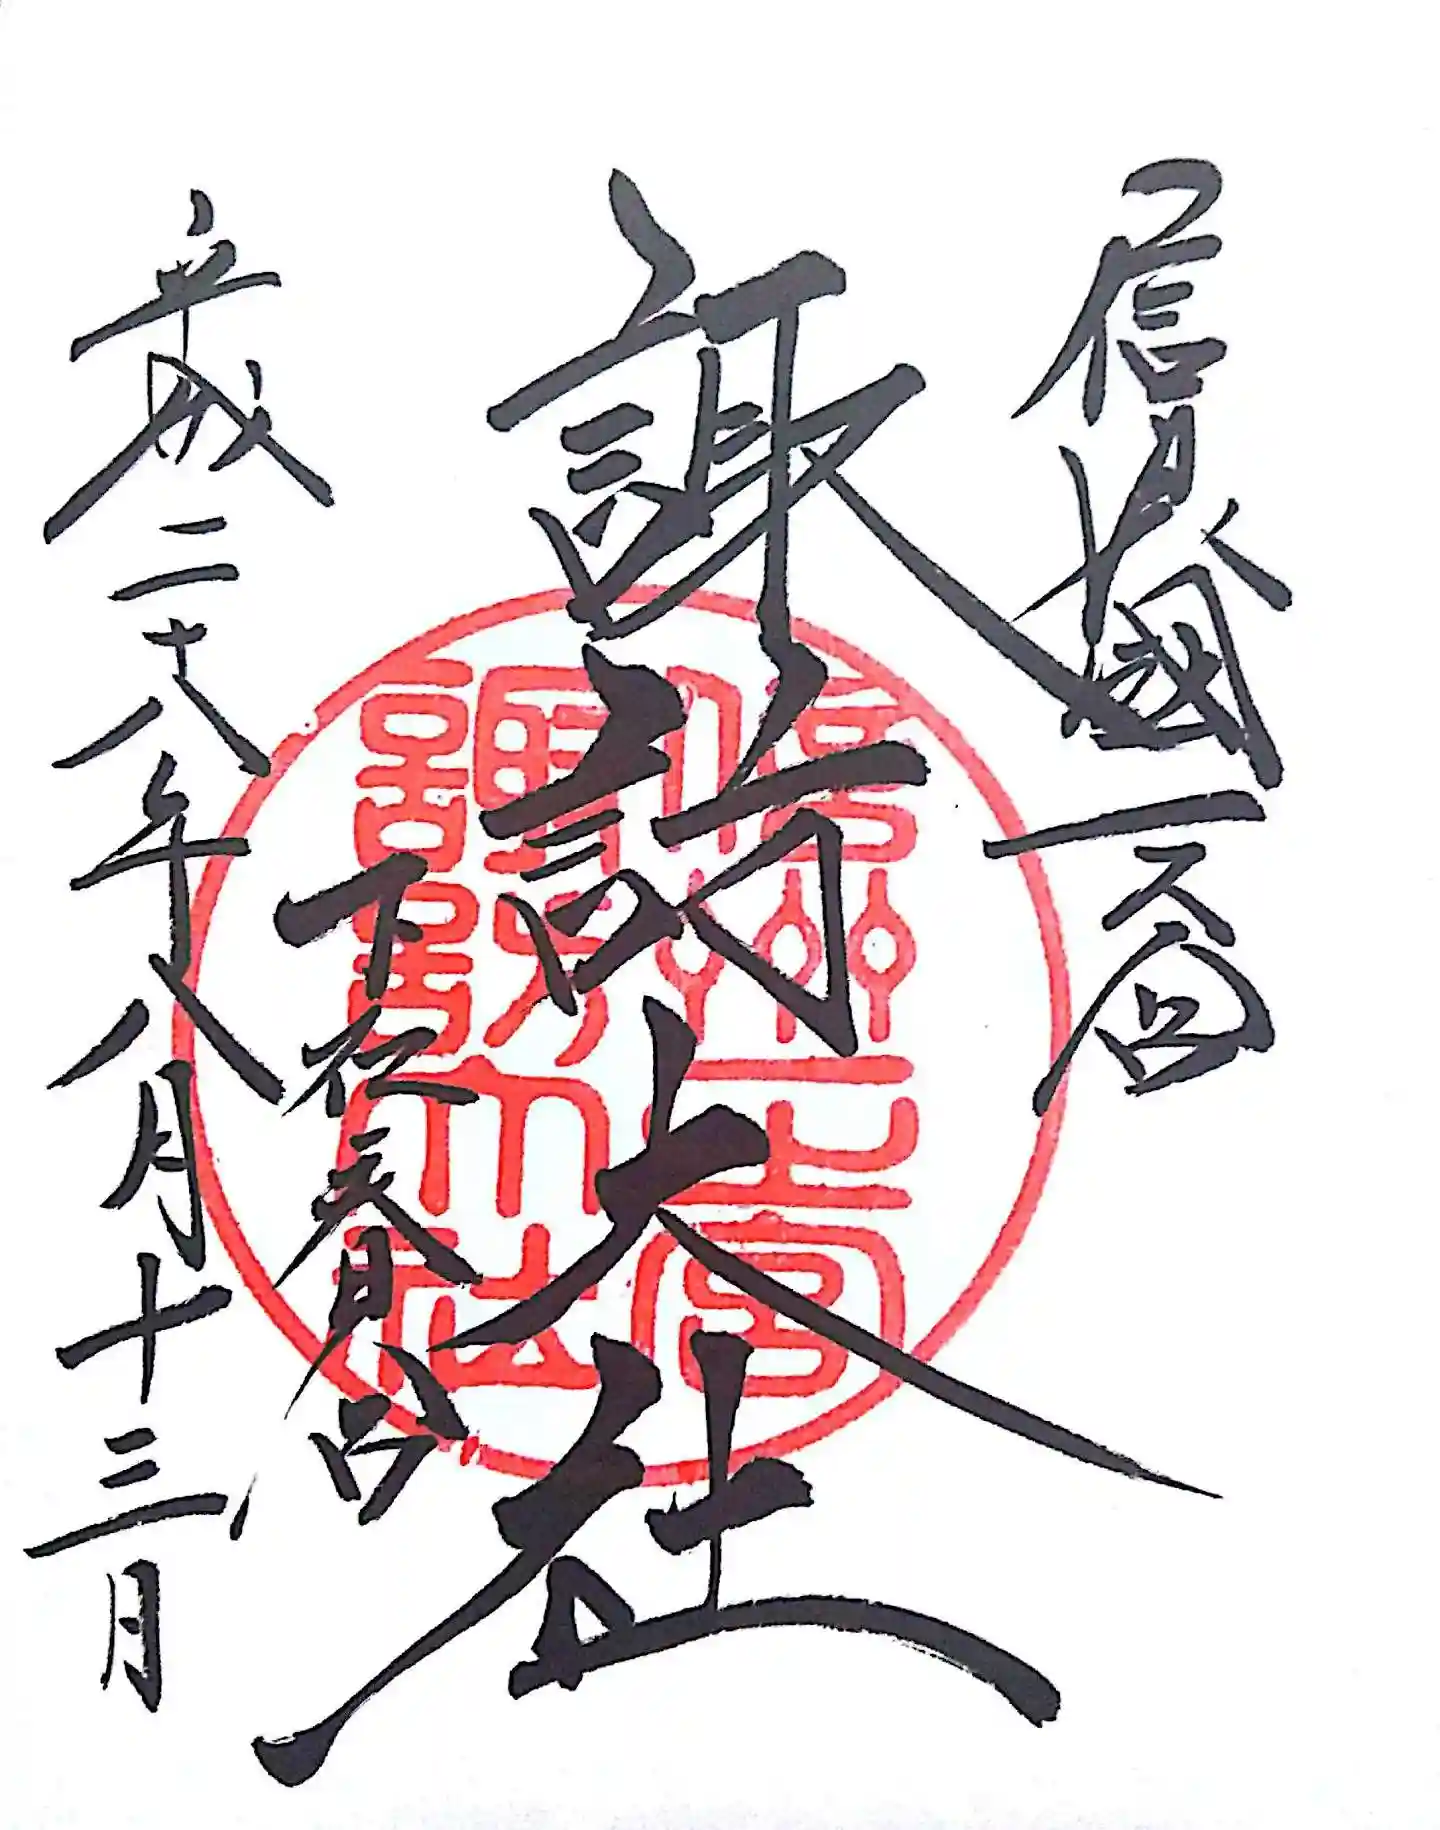 信濃國一之宮
諏訪大社
下社春宮
平成二十八年八月十三日
信州一之宮
諏訪大社